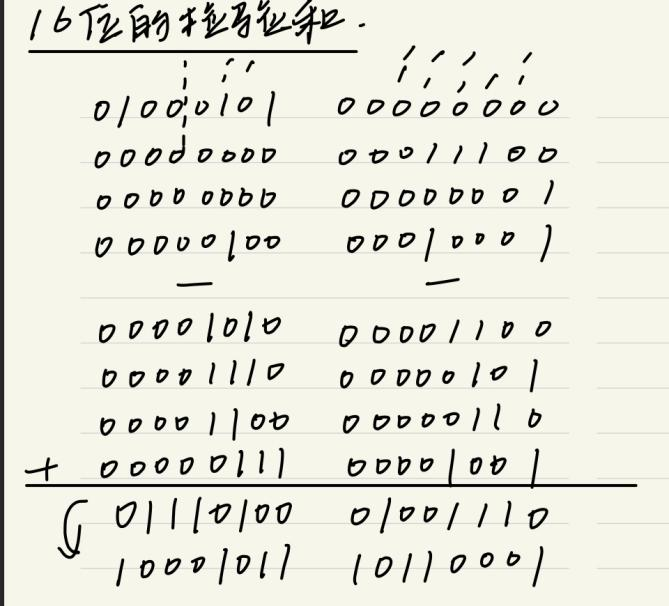 16位的校验和.
01000101 00000000
00000000 00011100
00000000 00000001
00000100 00010001
— —
00001010 00001100
00001110 00000101
00001100 00000110
+ 00000111 00001001
01110100 01001110
10001011 10110001